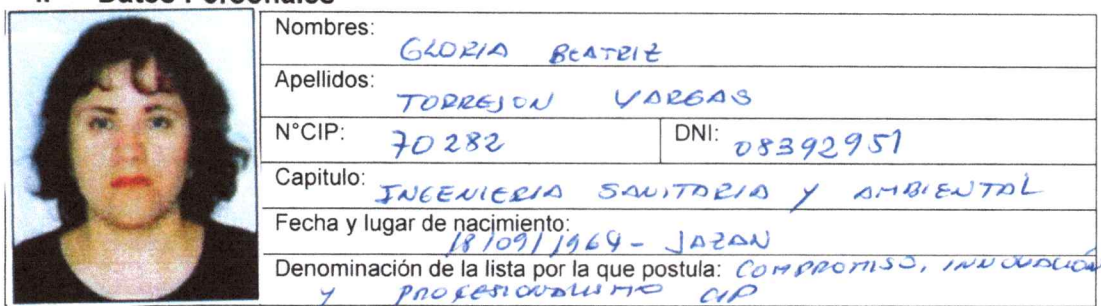 Nombres:
GLORIA BEATRIZ
Apellidos:
TORREJON VARGAS
N°CIP: 70282 DNI: 08392951
Capitulo: INGENIERIA SANITARIA Y AMBIENTAL
Fecha y lugar de nacimiento:
18/09/1964 - JAZAN
Denominación de la lista por la que postula: COMPROMISO, INNOVACIÓN
Y PROFESIONALISMO CIP